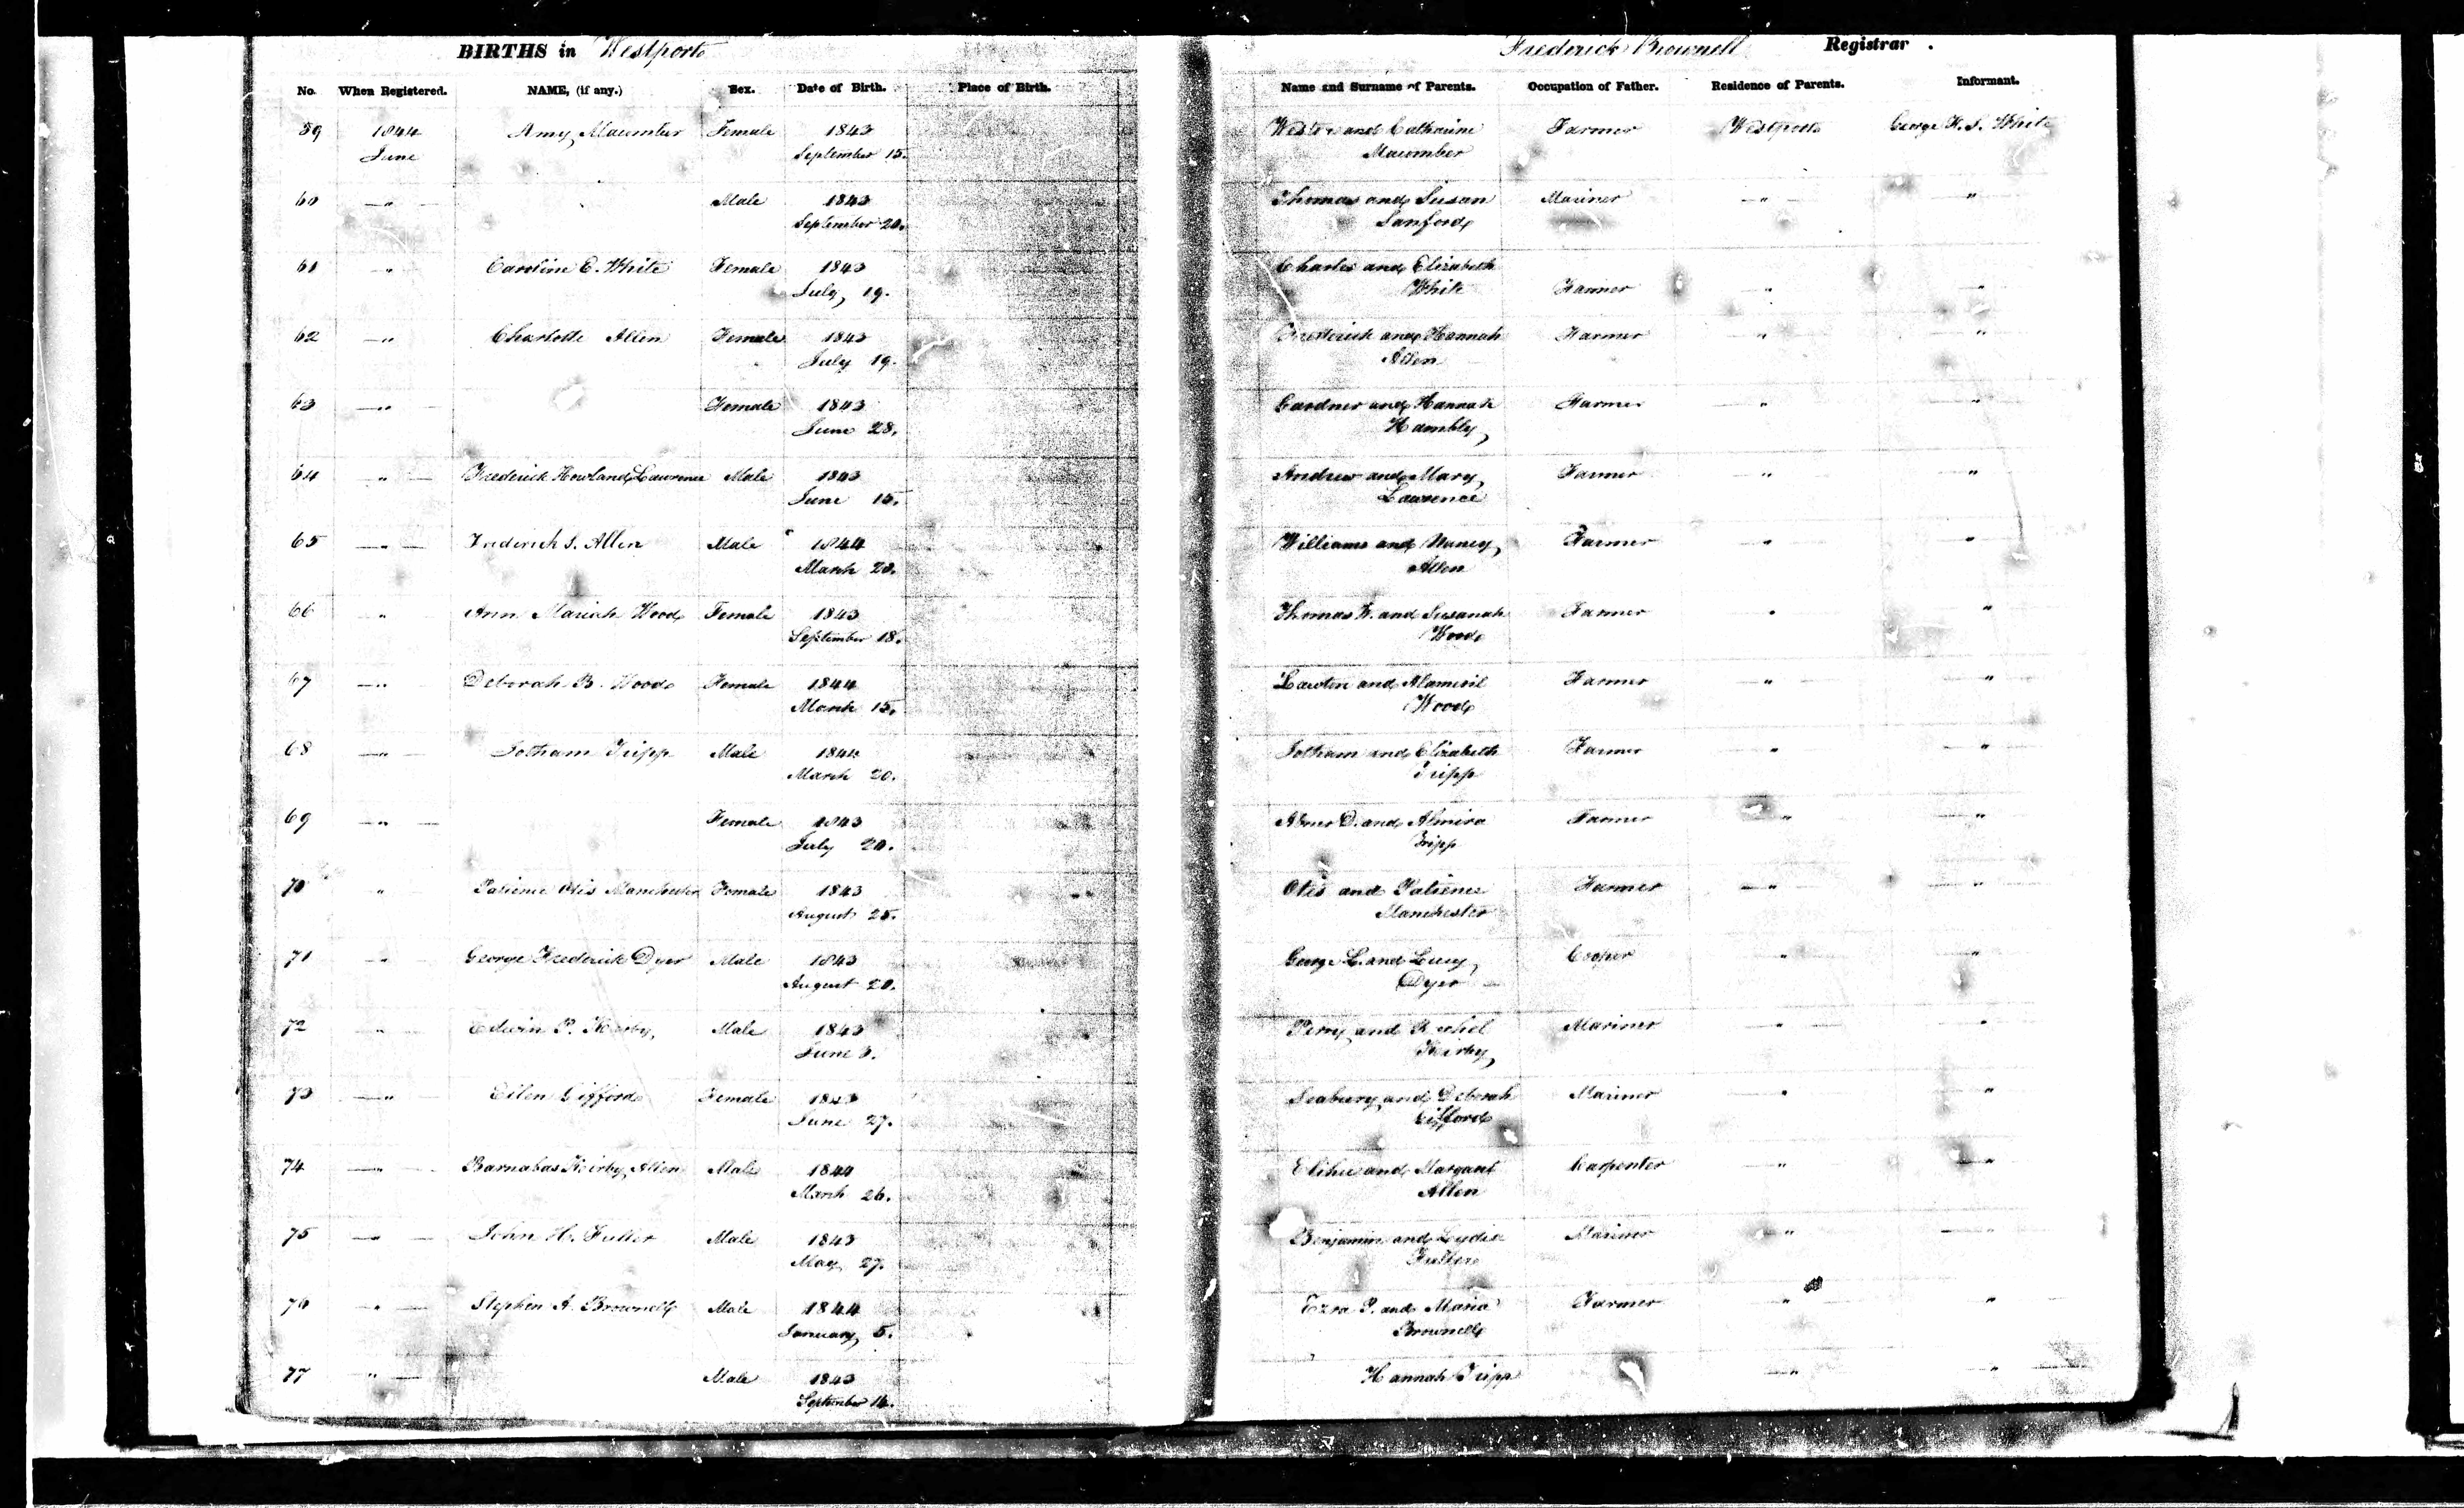 BIRTHS in Westport Frederick Brownell Registrar .
No. When Registered. NAME, (if any.) Sex. Date of Birth. Place of Birth. Name and Surname of Parents. Occupation of Father. Residence of Parents. Informant.
59 1844 Amy Macomber Female 1843 Weston and Catharine Farmer Westport George H. S. White
June September 15. Macomber
60 " Male 1843 Thomas and Susan Mariner " "
September 20. Sanford
61 " Caroline E. White Female 1843 Charles and Elizabeth
July 19. White Farmer " "
62 " Charlotte Allen Female 1843 Frederick and Hannah Farmer " "
July 19. Allen
63 " Female 1843 Gardner and Hannah Farmer " "
June 28. Hambly
64 " Frederick Howland Lawrence Male 1843 Andrew and Mary Farmer " "
June 15. Lawrence
65 " Frederick S. Allen Male 1844 William and Nancy Farmer " "
March 28. Allen
66 " Ann Mariah Wood Female 1843 Thomas W. and Susanah Farmer " "
September 18. Wood
67 " Deborah B. Wood Female 1844 Lawton and Farmer " "
March 15. Wood
68 " Jotham Tripp Male 1844 Jotham and Elizabeth Farmer " "
March 20. Tripp
69 " Female 1843 Abner D. and Almira Farmer " "
July 20. Tripp
70 " Patience Otis Manchester Female 1843 Otis and Patience Farmer " "
August 25. Manchester
71 " George Frederick Dyer Male 1843 George L. and Lucy Cooper " "
August 20. Dyer
72 " Edwin P. Kirby Male 1843 Perry and Mariner " "
June 3. Kirby
73 " Ellen Gifford Female 1843 Seabury and Deborah Mariner " "
June 27. Gifford
74 " Barnabas Kirby Allen Male 1844 Elihu and Margaret Carpenter " "
March 26. Allen
75 " John H. Fuller Male 1843 Benjamin and Lydia Mariner " "
May 27. Fuller
76 " Stephen A. Brownell Male 1844 Ezra P. and Maria Farmer " "
January 5. Brownell
77 " Male 1843 Hannah Tripp " "
September 14.